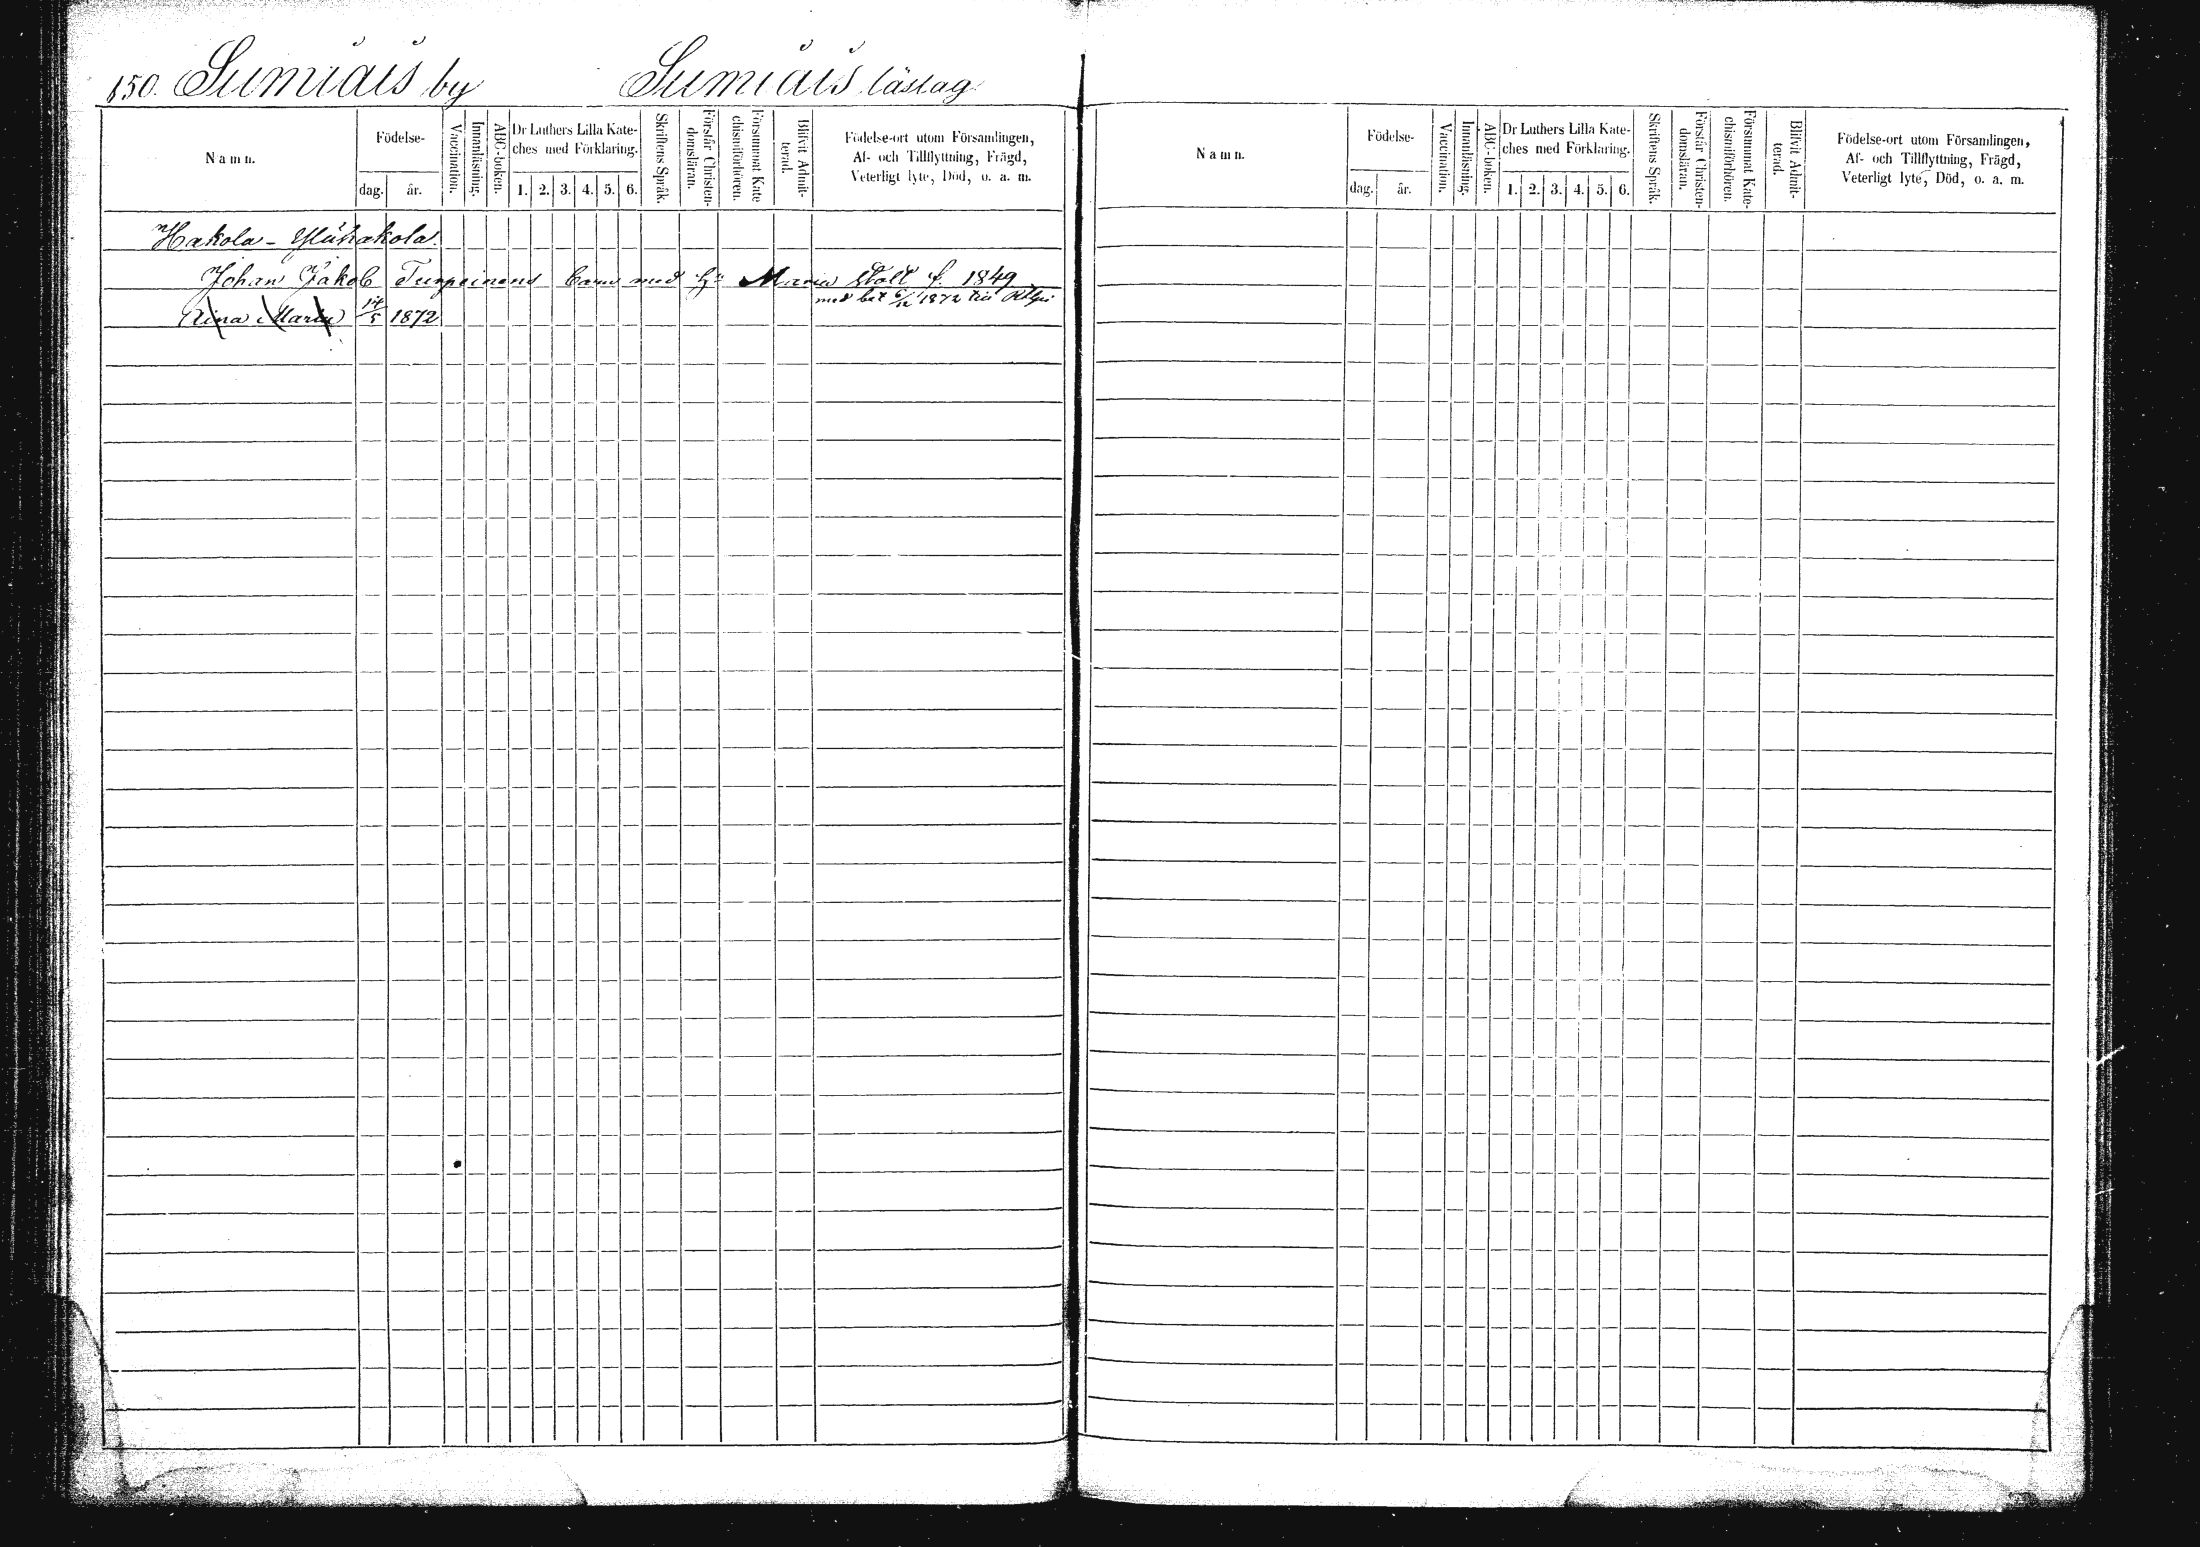 150. Sumiais by Sumiais läslag
Namn. Födelse- dag. år. Vaccination. Innanläsning. ABC-boken. Dr Luthers Lilla Kate-
ches med Förklaring. 1. 2. 3. 4. 5. 6. Skriftens Språk. Förstår Christen-
domsläran. Försummat Kate
chismiförhören. Blifvit Admit-
terad. Födelse-ort utom Församlingen,
Af- och Tillflyttning, Frägd,
Veterligt lyte, Död, o. a. m.
Hakola - Ylihakola.
Johan Jakob Turpeinens barn med Maria f. 1849
med bet 6/12 1872 till
Aina Maria 14/5 1872
Namn. Födelse- dag. år. Vaccination. Innanläsning. ABC-boken. Dr Luthers Lilla Kate-
ches med Förklaring. 1. 2. 3. 4. 5. 6. Skriftens Språk. Förstår Christen-
domsläran. Försummat Kate-
chismiförhören. Blifvit Admit-
terad. Födelse-ort utom Församlingen,
Af- och Tillflyttning, Frägd,
Veterligt lyte, Död, o. a. m.